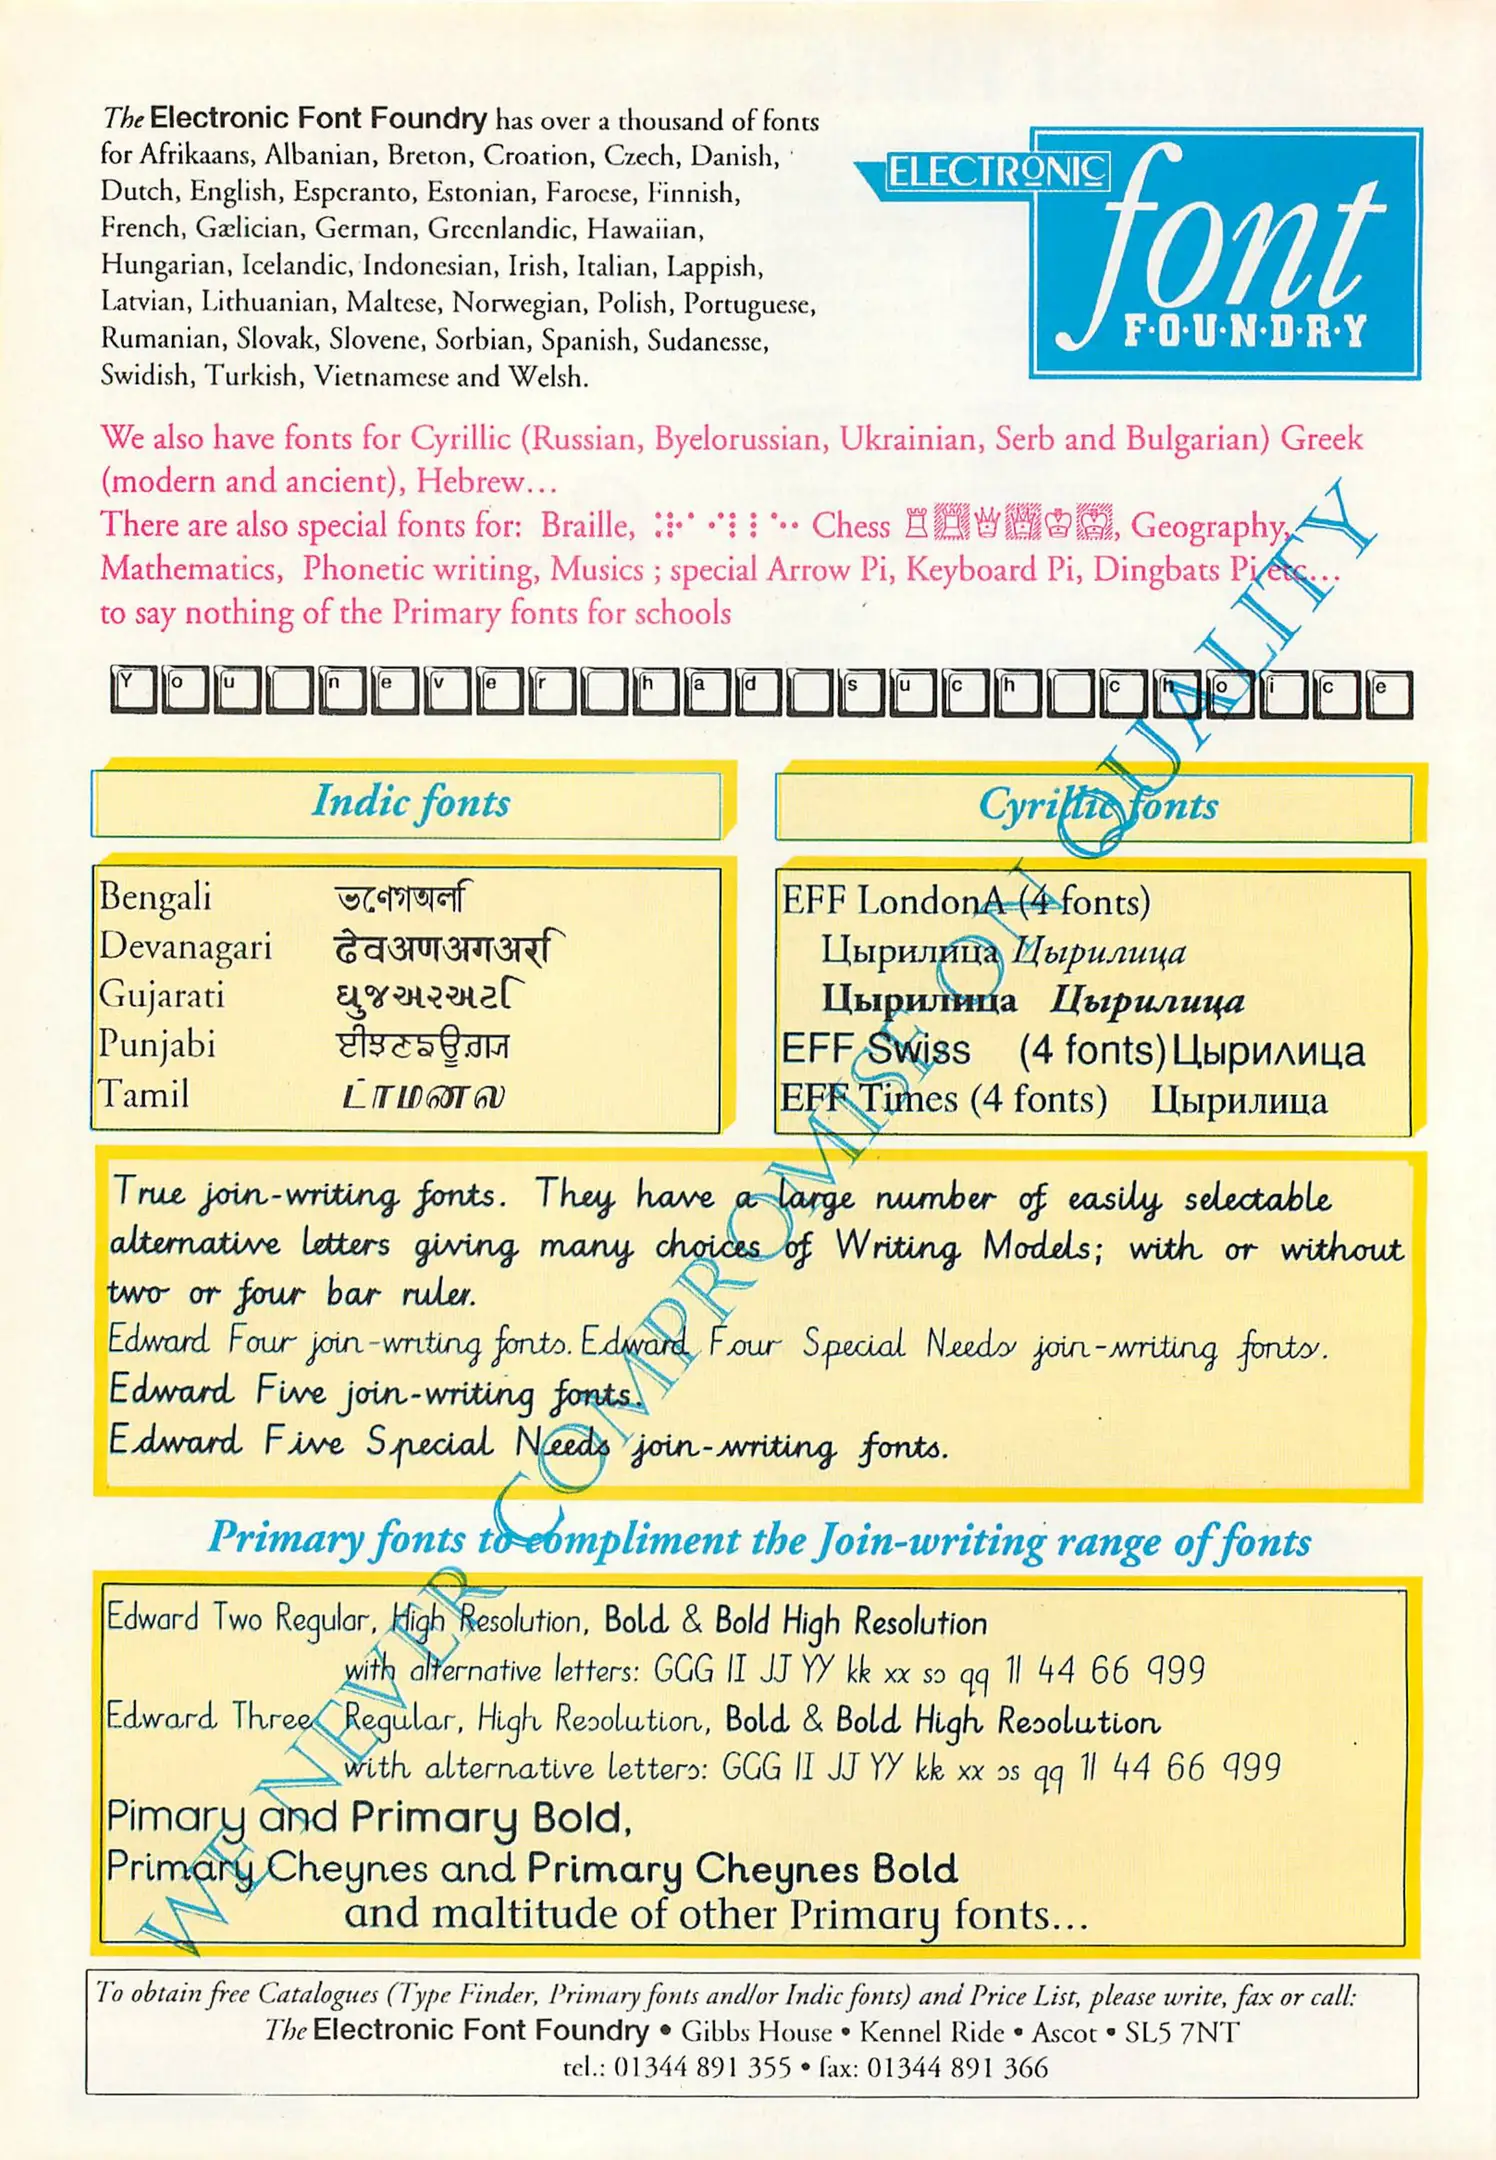 The Electronic Font Foundry has over a thousand of fonts
for Afrikaans, Albanian, Breton, Croation, Czech, Danish,
Dutch, English, Esperanto, Estonian, Faroese, Finnish,
French, Gælician, German, Greenlandic, Hawaiian,
Hungarian, Icelandic, Indonesian, Irish, Italian, Lappish,
Latvian, Lithuanian, Maltese, Norwegian, Polish, Portuguese,
Rumanian, Slovak, Slovene, Sorbian, Spanish, Sudanesse,
Swidish, Turkish, Vietnamese and Welsh.
ELECTRONIC
font
F·O·U·N·D·R·Y
We also have fonts for Cyrillic (Russian, Byelorussian, Ukrainian, Serb and Bulgarian) Greek
(modern and ancient), Hebrew...
There are also special fonts for: Braille, Chess , Geography,
Mathematics, Phonetic writing, Musics ; special Arrow Pi, Keyboard Pi, Dingbats Pi etc...
to say nothing of the Primary fonts for schools
You never had such choice
Indic fonts
Bengali
Devanagari
Gujarati
Punjabi
Tamil
Cyrillic fonts
EFF LondonA (4 fonts)
Цырилица Цырилица
Цырилица Цырилица
EFF Swiss (4 fonts) Цырилица
EFF Times (4 fonts) Цырилица
True join-writing fonts. They have a large number of easily selectable
alternative letters giving many choices of Writing Models; with or without
two or four bar ruler.
Edward Four join-writing fonts. Edward Four Special Needs join-writing fonts.
Edward Five join-writing fonts.
Edward Five Special Needs join-writing fonts.
Primary fonts to compliment the Join-writing range of fonts
Edward Two Regular, High Resolution, Bold & Bold High Resolution
with alternative letters: GGG II JJ YY kk xx ss qq 11 44 66 999
Edward Three Regular, High Resolution, Bold & Bold High Resolution
with alternative letters: GGG II JJ YY kk xx ss qq 11 44 66 999
Pimary and Primary Bold,
Primary Cheynes and Primary Cheynes Bold
and maltitude of other Primary fonts...
WE NEVER COMPROMISE ON QUALITY
To obtain free Catalogues (Type Finder, Primary fonts and/or Indic fonts) and Price List, please write, fax or call:
The Electronic Font Foundry • Gibbs House • Kennel Ride • Ascot • SL5 7NT
tel.: 01344 891 355 • fax: 01344 891 366